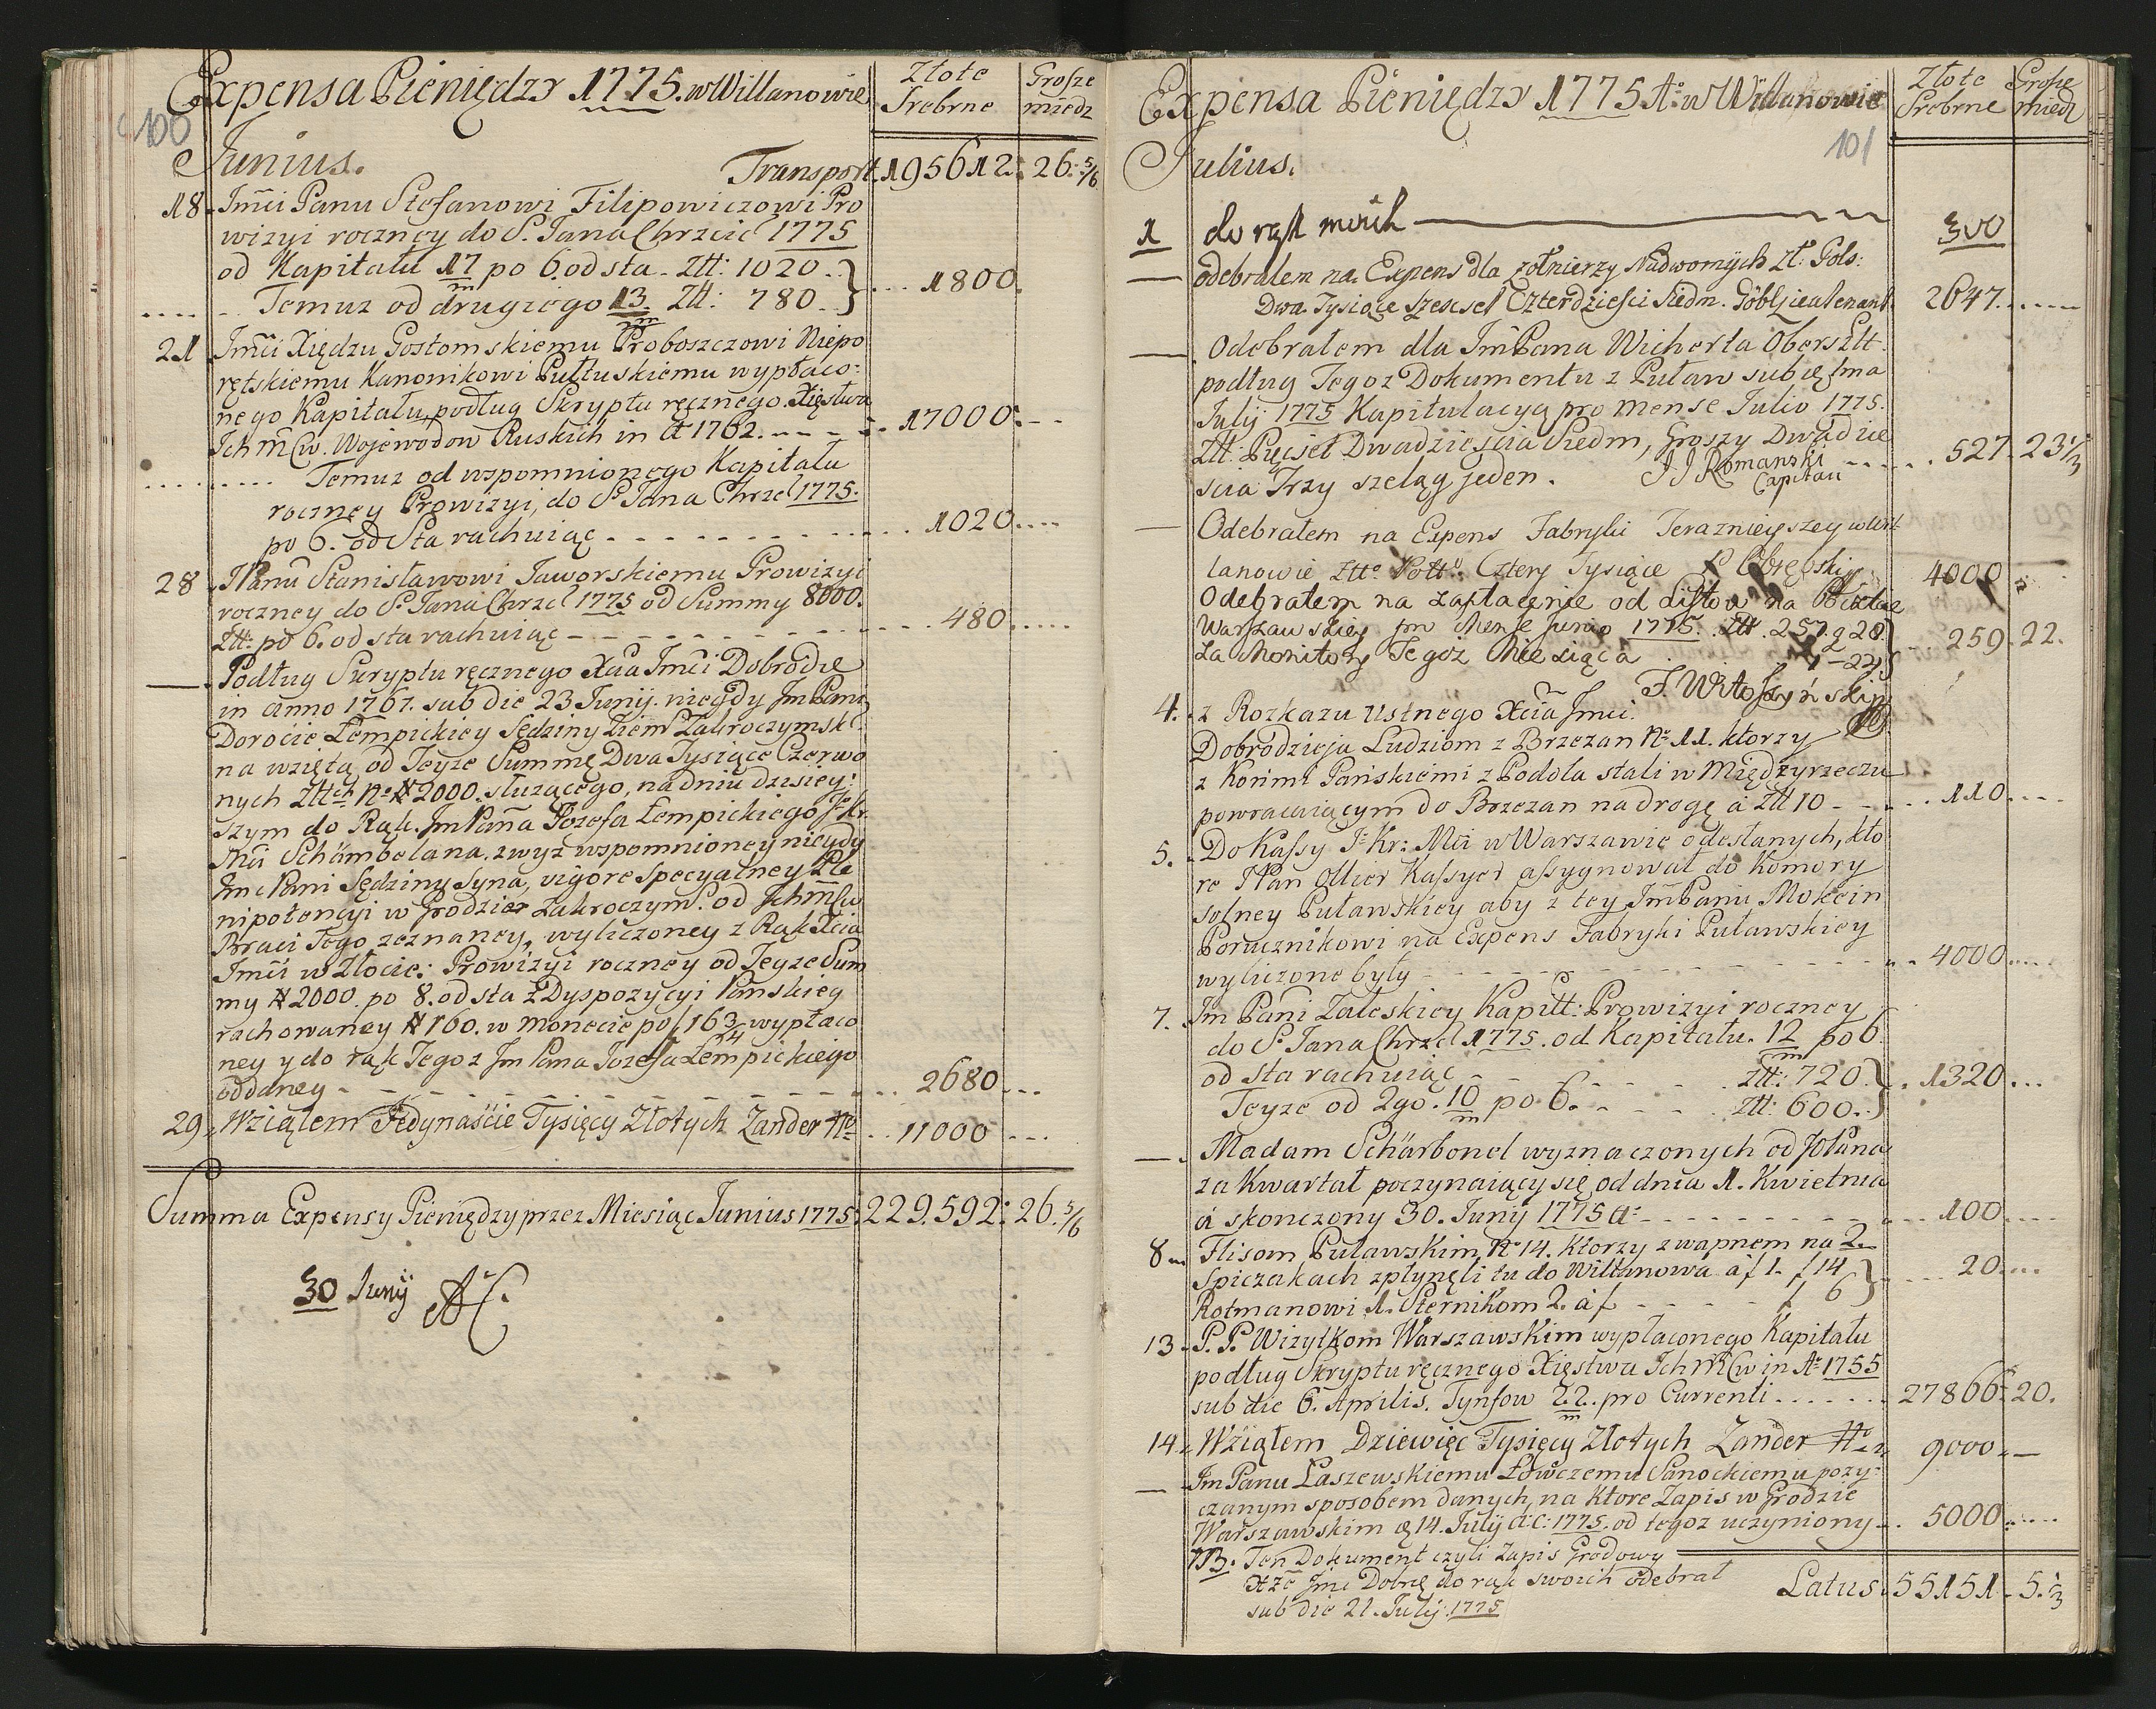 Expensa Pieniędzy 1775. w Willanowie
Złote Srebrne
Grosze miedz
100
Junius.
Transport. 195612. 26. 5/6
18. Jmći Panu Stefanowi Filipowiczowi Pro
wizyi roczney do S. Jana Chrzcić 1775
od Kapitału 17/m po 6. od sta - Złł: 1020..
Temuz od drugiego 13/m Złł: 780.. } ... 1800.
21. Jmći Xiędzu Gostomskiemu Proboszczowi Niepo
rętskiemu Kanonikowi Pułtuskiemu wypłaco=
nego Kapitału podług Skryptu ręcznego Xięstwa
Ich m̃ Cw. Wojewodow Ruskich in A 1762. --- 17000: --
Temuz od wspomnionego Kapitału
roczney Prowizyi, do S. Jana Chrzcl 1775.
po 6. od Sta rachuiąc - - - - - 1020....
28. JPanu Stanisławowi Jaworskiemu Prowizyi
roczney do S. Jana Chrzcl 1775 od Summy 8000.
Złł: po 6. od sta rachuiąc - - - - 480.....
—. Podług Skryptu ręcznego Xcia Jmći Dobrodzie
in anno 1767. sub die 23 Junij. niegdy Jm Pani
Dorocie Łempickiey Sędziny Ziem Zakroczymskl.
na wziętą od Teyze Summę Dwa Tysiące Czerwo
nych Złłch No # 2000. służącego, na dniu dzisiey:
szym do Rąk. Jm Pana Jozefa Łempickiego J. Kr.
Mći Schämbelana. zwyz wspomnioney niegdy
Jmć Pani Sędziny Syna, vigore Specyalney Ple
nipotencyi w Grodzie Zakroczym. od Ichm̃ Cw
Braci Tego zeznaney, wyliczoney z Rąk Xcia
Jmći w Złocie: Prowizyi roczney od Teyze Sum
my # 2000. po 8. od sta z Dyspozycyi Pańskiey
rachowaney # 160. w monecie po f 16 3/4 wypłaco
ney y do rąk Tegoz Jm Pana Jozefa Łempickiego
oddaney - - - - - - 2680 ...
29. Wziąłem Jedynaście Tysięcy Złotych Zander .. 11000 ...
Summa Expensy Pieniędzy przez Miesiąc Junius 1775: 229.592: 26. 5/6
30 Junij AC.
Expensa Pieniędzy 1775 Ao: w Willanowie
Złote Srebrne
Grosze miedz
101
Julius.
1 do rąk moich — 300
— odebrałem na Expens dla żołnierzy Nadwornych Zł: Pols:
Dwa Tysiące Szescset Czterdzieści Siedm. 2647.....
—. Odebrałem dla Jm Pana Wicherta Oberszłt.
podług Tegoz Dokumentu z Puław sub 1ę́ Jma
Julij 1775 Kapitulacyą pro mense Julio 1775.
Złł: Pięcset Dwadzieścia Siedm, Groszy Dwadzie
ścia Trzy szeląg jeden. J J Romanski Capitan ..... 527. 23 1/3
— Odebrałem na Expens Fabryki Teraznieyszey w Wil
lanowie Złło Poll: Cztery Tysiące 4000
Odebrałem na zapłacenie od Listow na Poczcie
Warszawskiey pro Mense Junio 1775. Złł. 257. g 28.
za Monitory Tegoz Miesiąca . 1 - 24 } - 259. 22.
F. Witoszyński
4. z Rozkazu Ustnego Xcia Jmći.
Dobrodzieja Ludziom z Brzezan No 11. ktorzy
z Końmi Pańskiemi z Podola stali w Międzyrzeczu
powracaiącym do Brzezan na drogę á Złł 10 - - - 110....
5. Do Kassy J. Kr: Mći w Warszawie odesłanych, kto
re JPan Ollier Kassyer assygnował do Komory
solney Puławskiey aby z tey Jm Panu Mokcin
Porucznikowi na Expens Fabryki Puławskiey
wyliczone były - - - - - - - - 4000.....
7. Jm Pani Zaleskiey Kapitt: Prowizyi roczney
do S. Jana Chrzcl 1775. od Kapitału. 12/m po 6.
od sta rachuiąc - - - - Złł: 720.
Teyze od 2go. 10/m po 6. - - - - Złł: 600.. } . 1320...
—. Madam Schärbonel wyznaczonych od JOPana
za Kwartał poczynaiący się od dnia 1. Kwietnia
á skonczony 30. Junij 1775 A: - - - - - 100....
8. Flisom Puławskim No 14. Ktorzy z wapnem na 2.
Spiczakach zpłynęli tu do Willanowa á f 1. f 14
Rotmanowi 1. Sternikom 2. á f - - - - f 6 } ... 20....
13. P.P. Wizytkom Warszawskim wypłaconego Kapitału
podług Skryptu ręcznego Xięstwa Ich m̃ Cw in Ao: 1755
sub die 6. Aprilis. Tynfow 22/m pro Currenti ...... 27866: 20.
14. Wziąłem Dziewięc Tysięcy Złotych Zander 9000. —
—. Jm Panu Laszewskiemu Łowczemu Sanockiemu pozy=
czanym sposobem danych, na ktore Zapis w Grodzie
Warszawskim d 14. Julij A:C: 1775. od tegoz uczyniony.. 5000.....
NB. Ten Dokument czyli Zapis Grodowy
Xże Jmć Dobrę do rąk swoich odebrał
sub die 21. Julij 1775
Latus. 55151. 5. 1/3